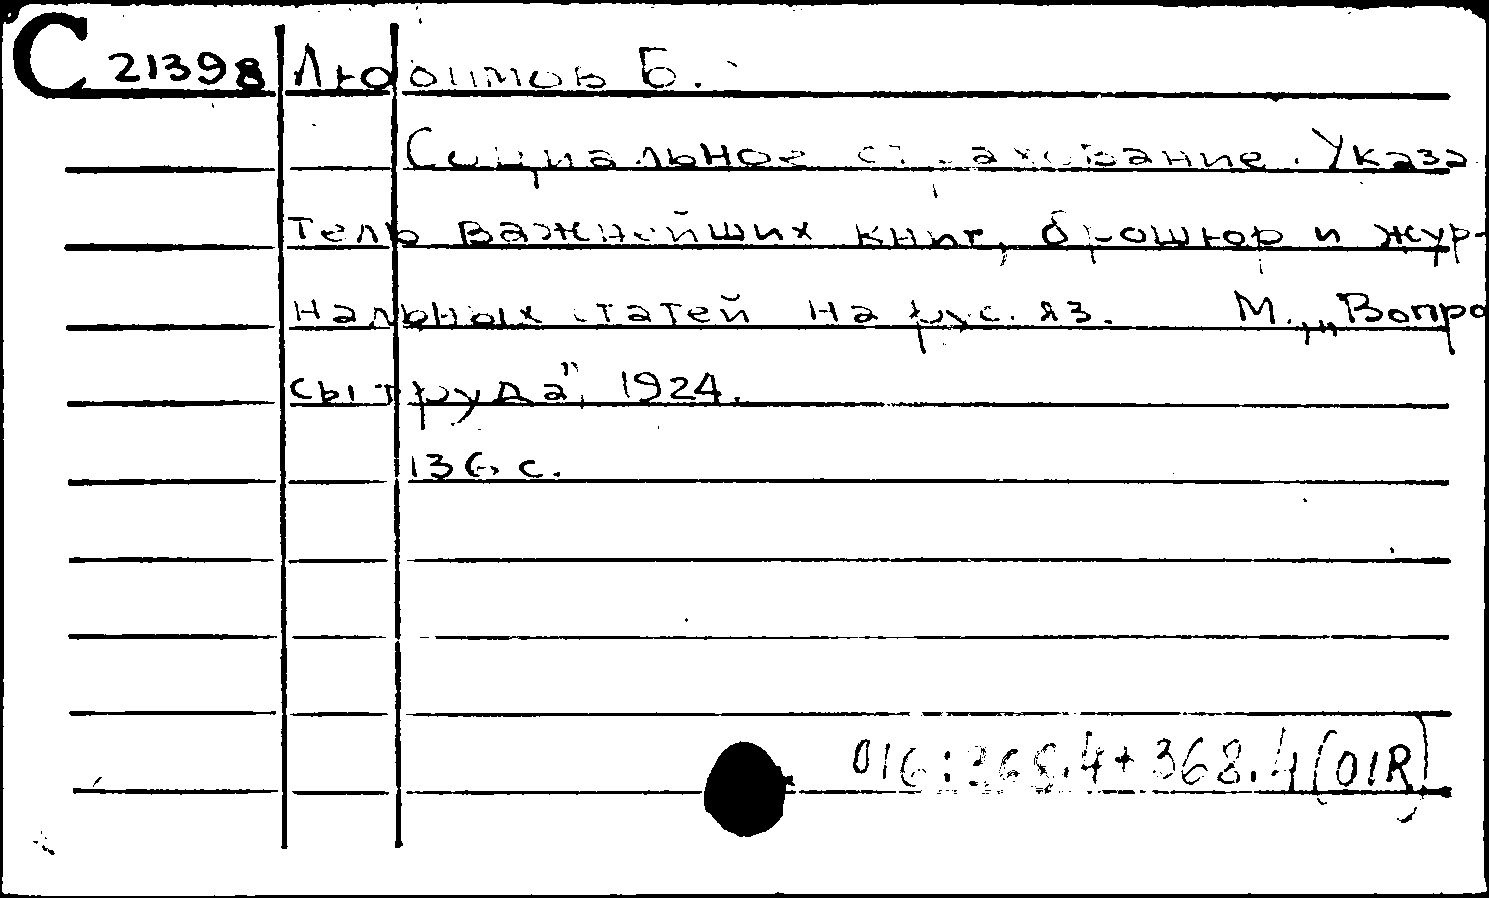 С 21398 Любимов Б.
Социальное страхование. Указа
тель важнейших книг, брошюр и жур-
нальных статей на рус. яз. М., „Вопро
сы труда", 1924.
136 с.
016:368.4+368.4(01R)